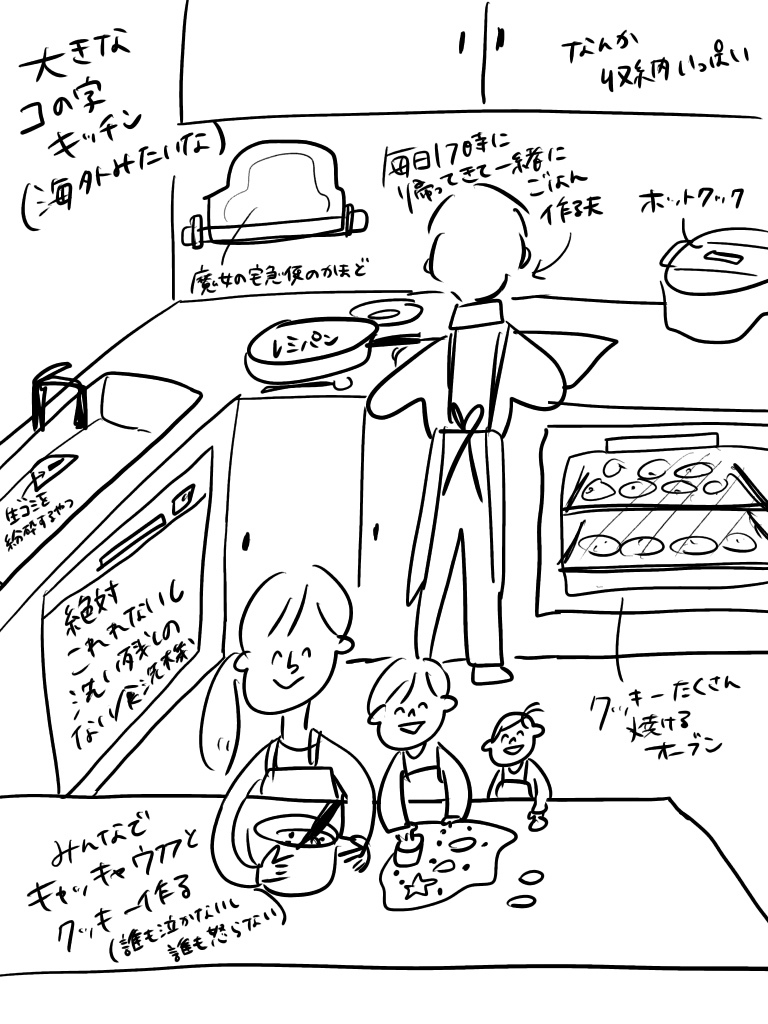 大きな
コの字
キッチン
(海外みたいな)
なんか
収納いっぱい
毎日17時に
帰ってきて一緒に
ごはん
作る夫
ホットクック
魔女の宅急便のかまど
レミパン
生ゴミを
粉砕するやつ
絶対
こわれないし
洗い残しの
ない食洗機
クッキーたくさん
焼ける
オーブン
みんなで
キャッキャウフフと
クッキー作る
(誰も泣かないし
誰も怒らない)